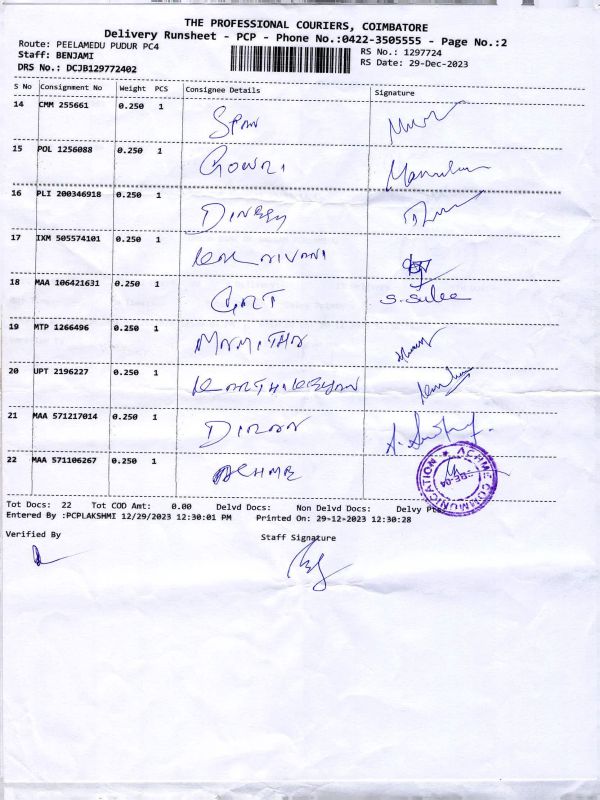 THE PROFESSIONAL COURIERS, COIMBATORE
Delivery Runsheet - PCP - Phone No.:0422-3505555 - Page No.:2
Route: PEELAMEDU PUDUR PC4
RS No.: 1297724
Staff: BENJAMI
RS Date: 29-Dec-2023
DRS No.: DCJB129772402
S No Consignment No Weight PCS Consignee Details Signature
14 CMM 255661 0.250 1 SPAN
15 POL 1256088 0.250 1 GOWRI
16 PLI 200346918 0.250 1 DINESH
17 IXM 505574101 0.250 1 KALAIVANI
18 MAA 106421631 0.250 1 S.Sulee
19 MTP 1266496 0.250 1 MAMITHA
20 UPT 2196227 0.250 1 KARTHIKEYAN
21 MAA 571217014 0.250 1
22 MAA 571106267 0.250 1 ACHME
ACHME COMMUNICATION
CBE-04
Tot Docs: 22 Tot COD Amt: 0.00 Delvd Docs: Non Delvd Docs: Delvy
Entered By :PCPLAKSHMI 12/29/2023 12:30:01 PM Printed On: 29-12-2023 12:30:28
Verified By Staff Signature